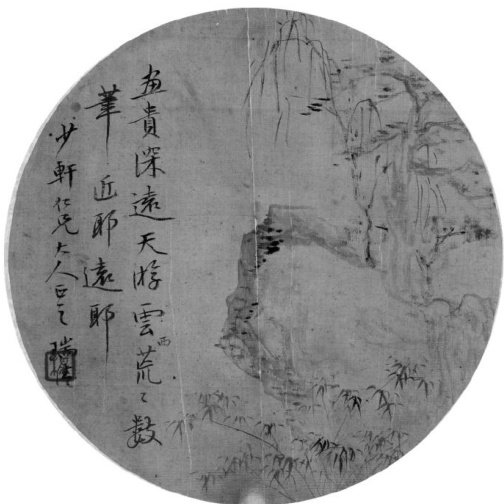 畫貴深遠天游雲西荒〻數
筆近耶遠耶
少軒仁兄大人正之